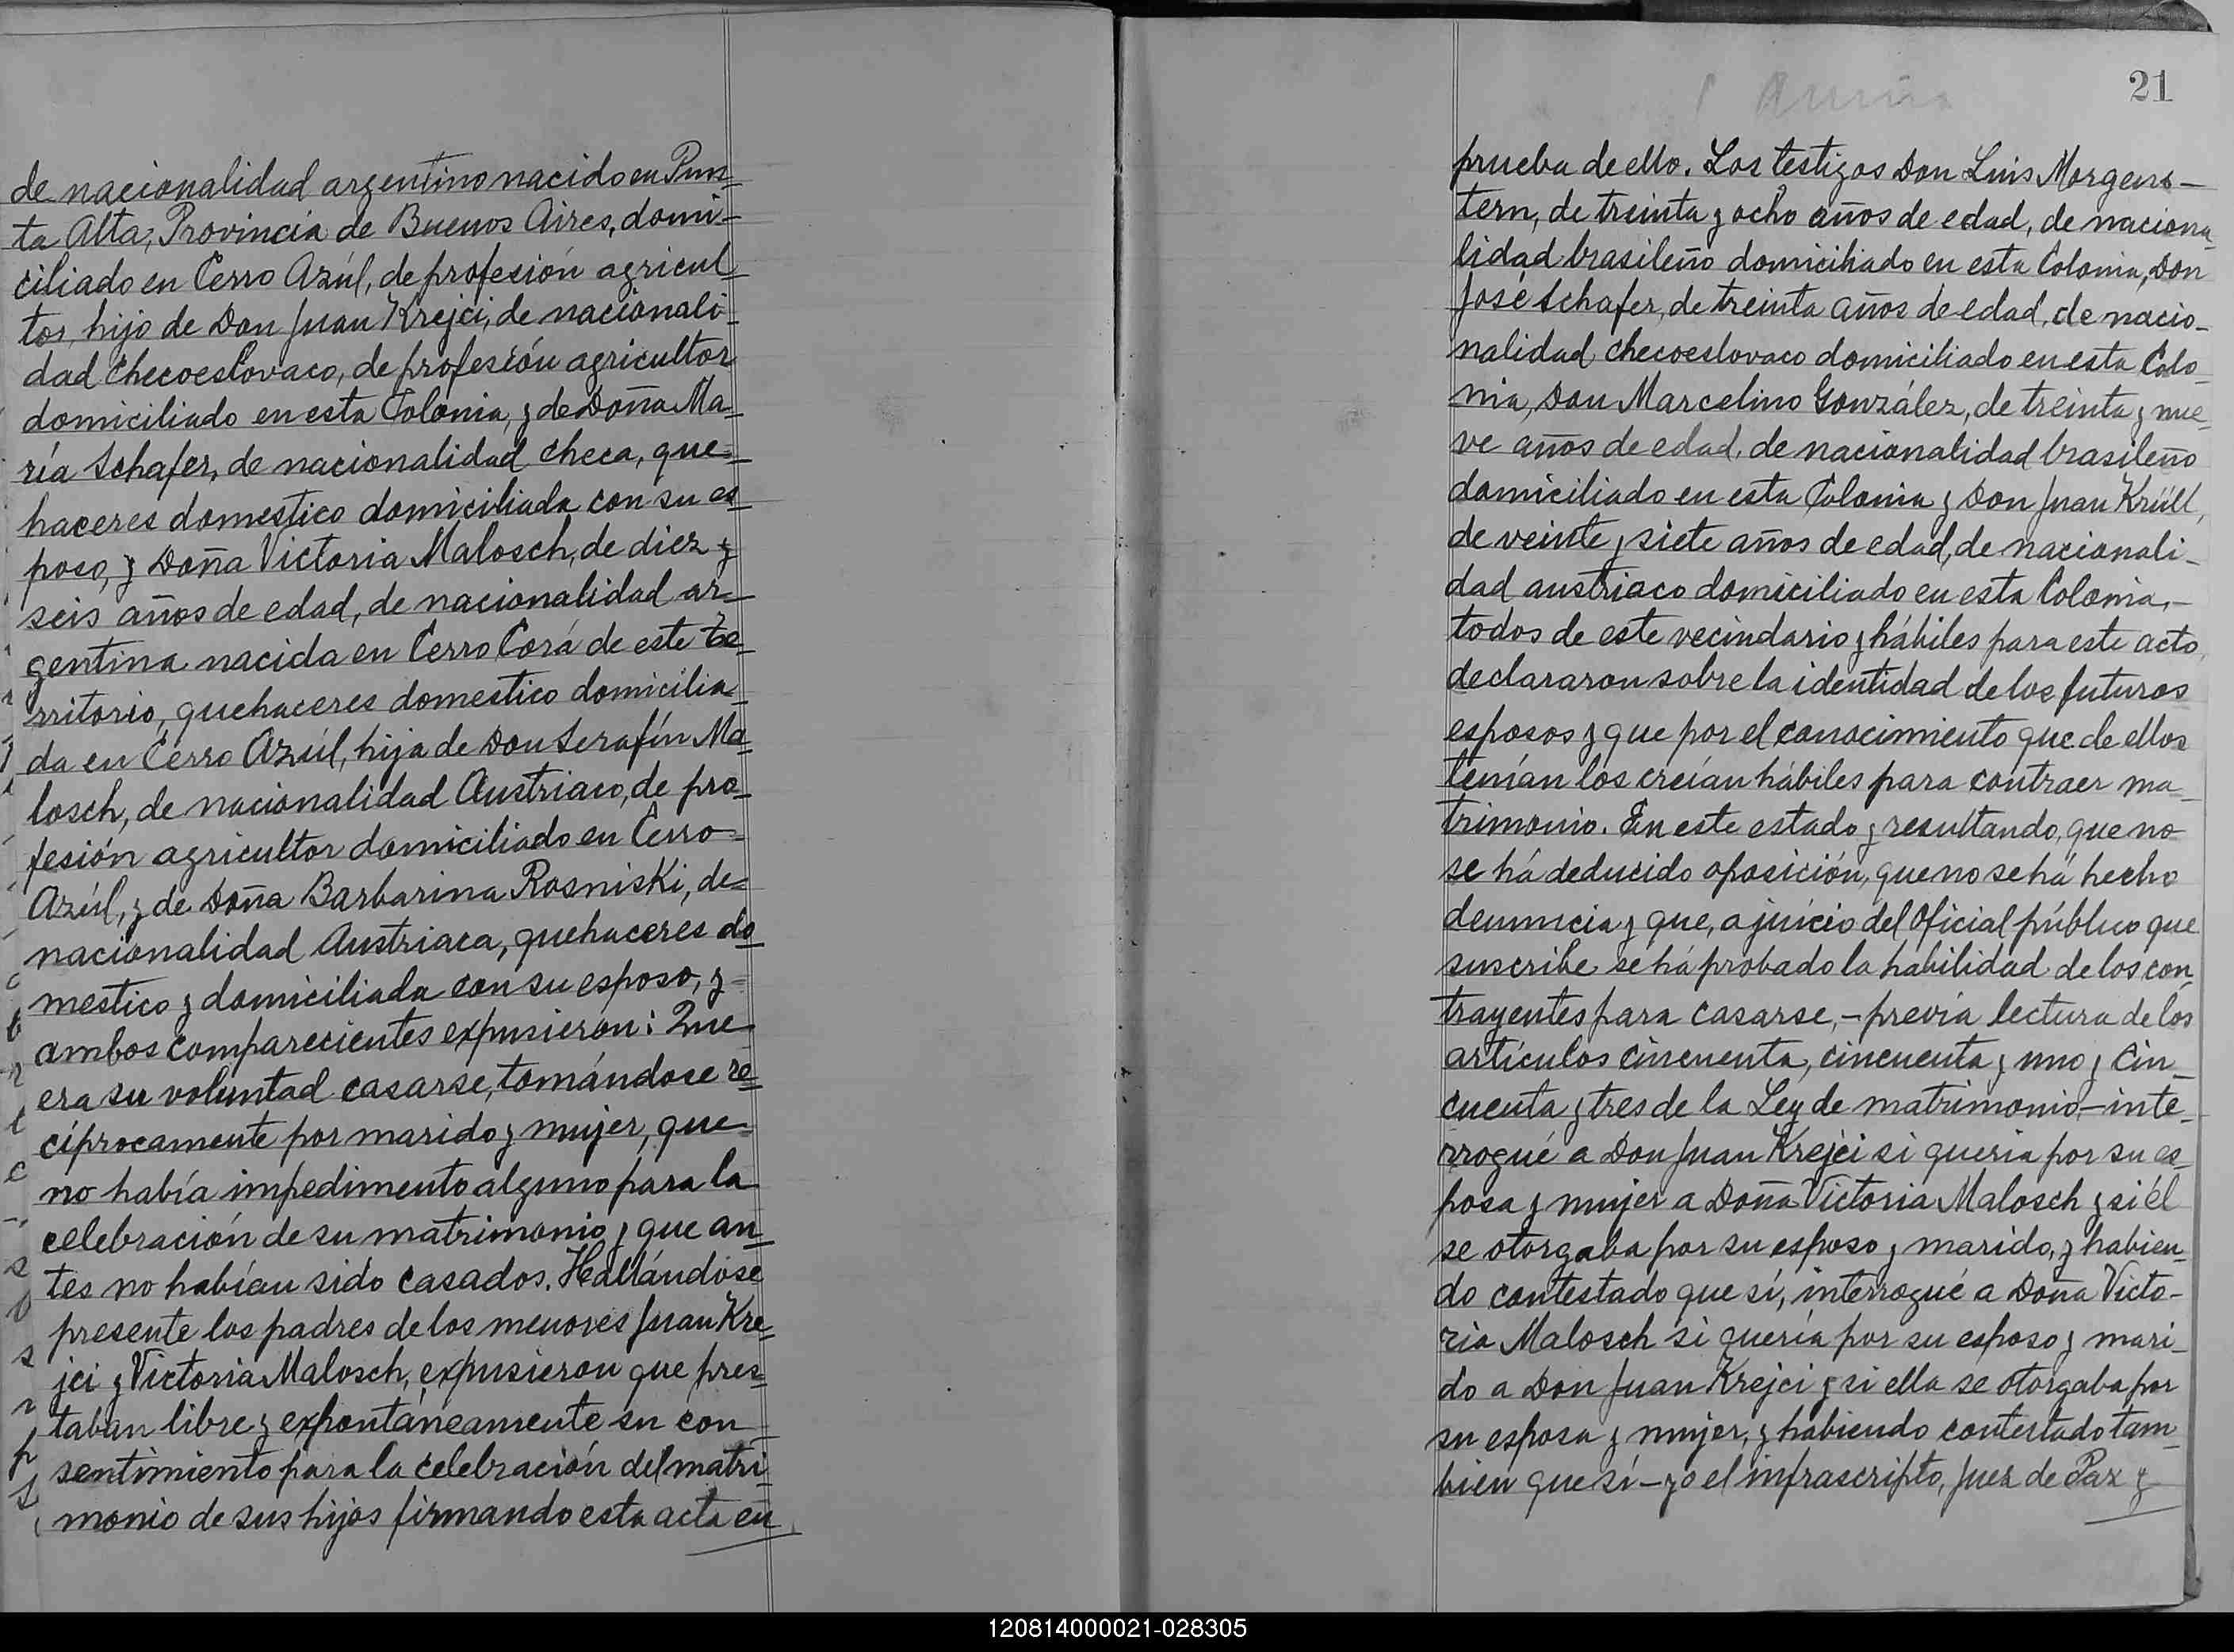 de nacionalidad argentino nacido en Pun-
ta Alta, Provincia de Buenos Aires, domi-
ciliado en Cerro Azúl, de profesión agricul-
tos, hijo de Don Juan Krejci, de nacionali-
dad Checoeslovaco, de profesión agricultor
domiciliado en esta Colonia, y de Doña Ma-
ría Schafer, de nacionalidad checa, que-
haceres domestico domiciliada con su es-
poso, y Doña Victoria Malosch, de diez y
seis años de edad, de nacionalidad ar-
gentina nacida en Cerro Corá de este te-
rritorio, quehaceres domestico domicilia-
da en Cerro Azúl, hija de Don Serafín Ma-
losch, de nacionalidad Austriaco, de pro-
fesión agricultor domiciliado en Cerro-
Azúl, y de Doña Barbarina Rosniski, de=
nacionalidad Austriaca, quehaceres do-
mestico y domiciliada con su esposo, y=
ambos comparecientes expusieron: Que
era su voluntad casarse, tomándose re-
cíprocamente por marido y mujer, que=
no había impedimento alguno para la
celebración de su matrimonio y que an-
tes no habían sido casados. Hallándose
presente los padres de los menores Juan Kre-
jci y Victoria Malosch, expusieron que pres-
taban libre y expontáneamente su con-
sentimiento para la celebración del matri-
monio de sus hijos firmando esta acta en
21
prueba de ello. Los testigos Don Luis Morgens-
tern, de treinta y ocho años de edad, de naciona-
lidad brasileño domiciliado en esta Colonia, Don
José Schafer, de treinta años de edad, de nacio-
nalidad checoeslovaco domiciliado en esta Colo-
nia, Don Marcelino González, de treinta y nue-
ve años de edad, de nacionalidad brasileño
domiciliado en esta Colonia y Don Juan Krüll,
de veinte y siete años de edad, de nacionali-
dad austriaco domiciliado en esta Colonia,-
todos de este vecindario y hábiles para este acto,
declararon sobre la identidad de los futuros
esposos y que por el conocimiento que de ellos
tenían los creían hábiles para contraer ma-
trimonio. En este estado y resultando, que no
se há deducido oposición, que no se há hecho
denuncia y que, a juicio del Oficial público que
suscribe se há probado la habilidad de los con-
trayentes para casarse,-previa lectura de los
artículos cincuenta, cincuenta y uno y cin-
cuenta y tres de la Ley de matrimonio,-inte-
rrogué a Don Juan Krejci si quería por su es-
posa y mujer a Doña Victoria Malosch y si él
se otorgaba por su esposo y marido, y habien-
do contestado que sí, interrogué a Doña Victo-
ria Malosch si quería por su esposo y mari-
do a Don Juan Krejci y si ella se otorgaba por
su esposa y mujer, y habiendo contestado tam-
bien que sí-yo el infrascripto, Juez de Paz y
120814000021-028305